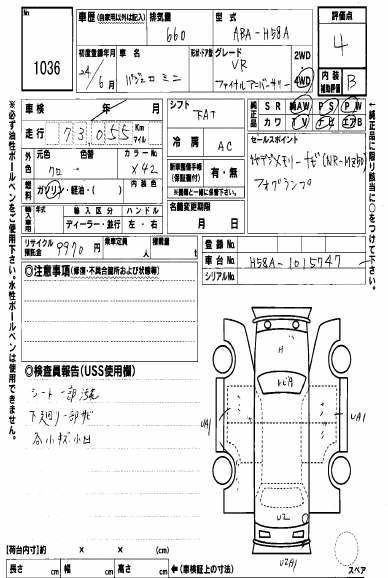 No.
1036
車歴 (自家用以外は記入)
排気量
660
型式
ABA-H58A
評価点
4
初度登録年月
24年
6月
車名
パジェロミニ
形状・ドア数
グレード
VR
ファイナルアニバーサリー
2WD
4WD
内装
補助評価
B
車検
年 月
走行
73,055
Km
マイル
シフト
FAT
冷房
AC
純正品
SR
純AW
PS
PW
カワ
TV
ナビ
エアB
外色
元色
クロ
色替
カラーNo.
X42
内装色
燃料
ガソリン・軽油・( )
新車整備手帳
(保証書付)
有・無
※書類と一緒に保管下さい。
セールスポイント
フォグランプ
輸入車用
年式
輸入区分
ディーラー・並行
ハンドル
左・右
名義変更期限
月 日
リサイクル
預託金
9970円
乗車定員
人
積載量
登録No.
車台No.
H58A-1015747
シリアルNo.
◎注意事項 (修復・不具合箇所および状態等)
◎検査員報告(USS使用欄)
シート一部汚れ
下廻り一部サビ
各小キズ小凹
H
UA1
UA1
U2
[荷台内寸]約 × × (cm)
長さ cm 幅 cm 高さ cm
←(車検証上の寸法)
スペア
※必ず油性ボールペンをご使用下さい。水性ボールペンは使用できません。
←純正品に限り該当に○をつけて下さい。